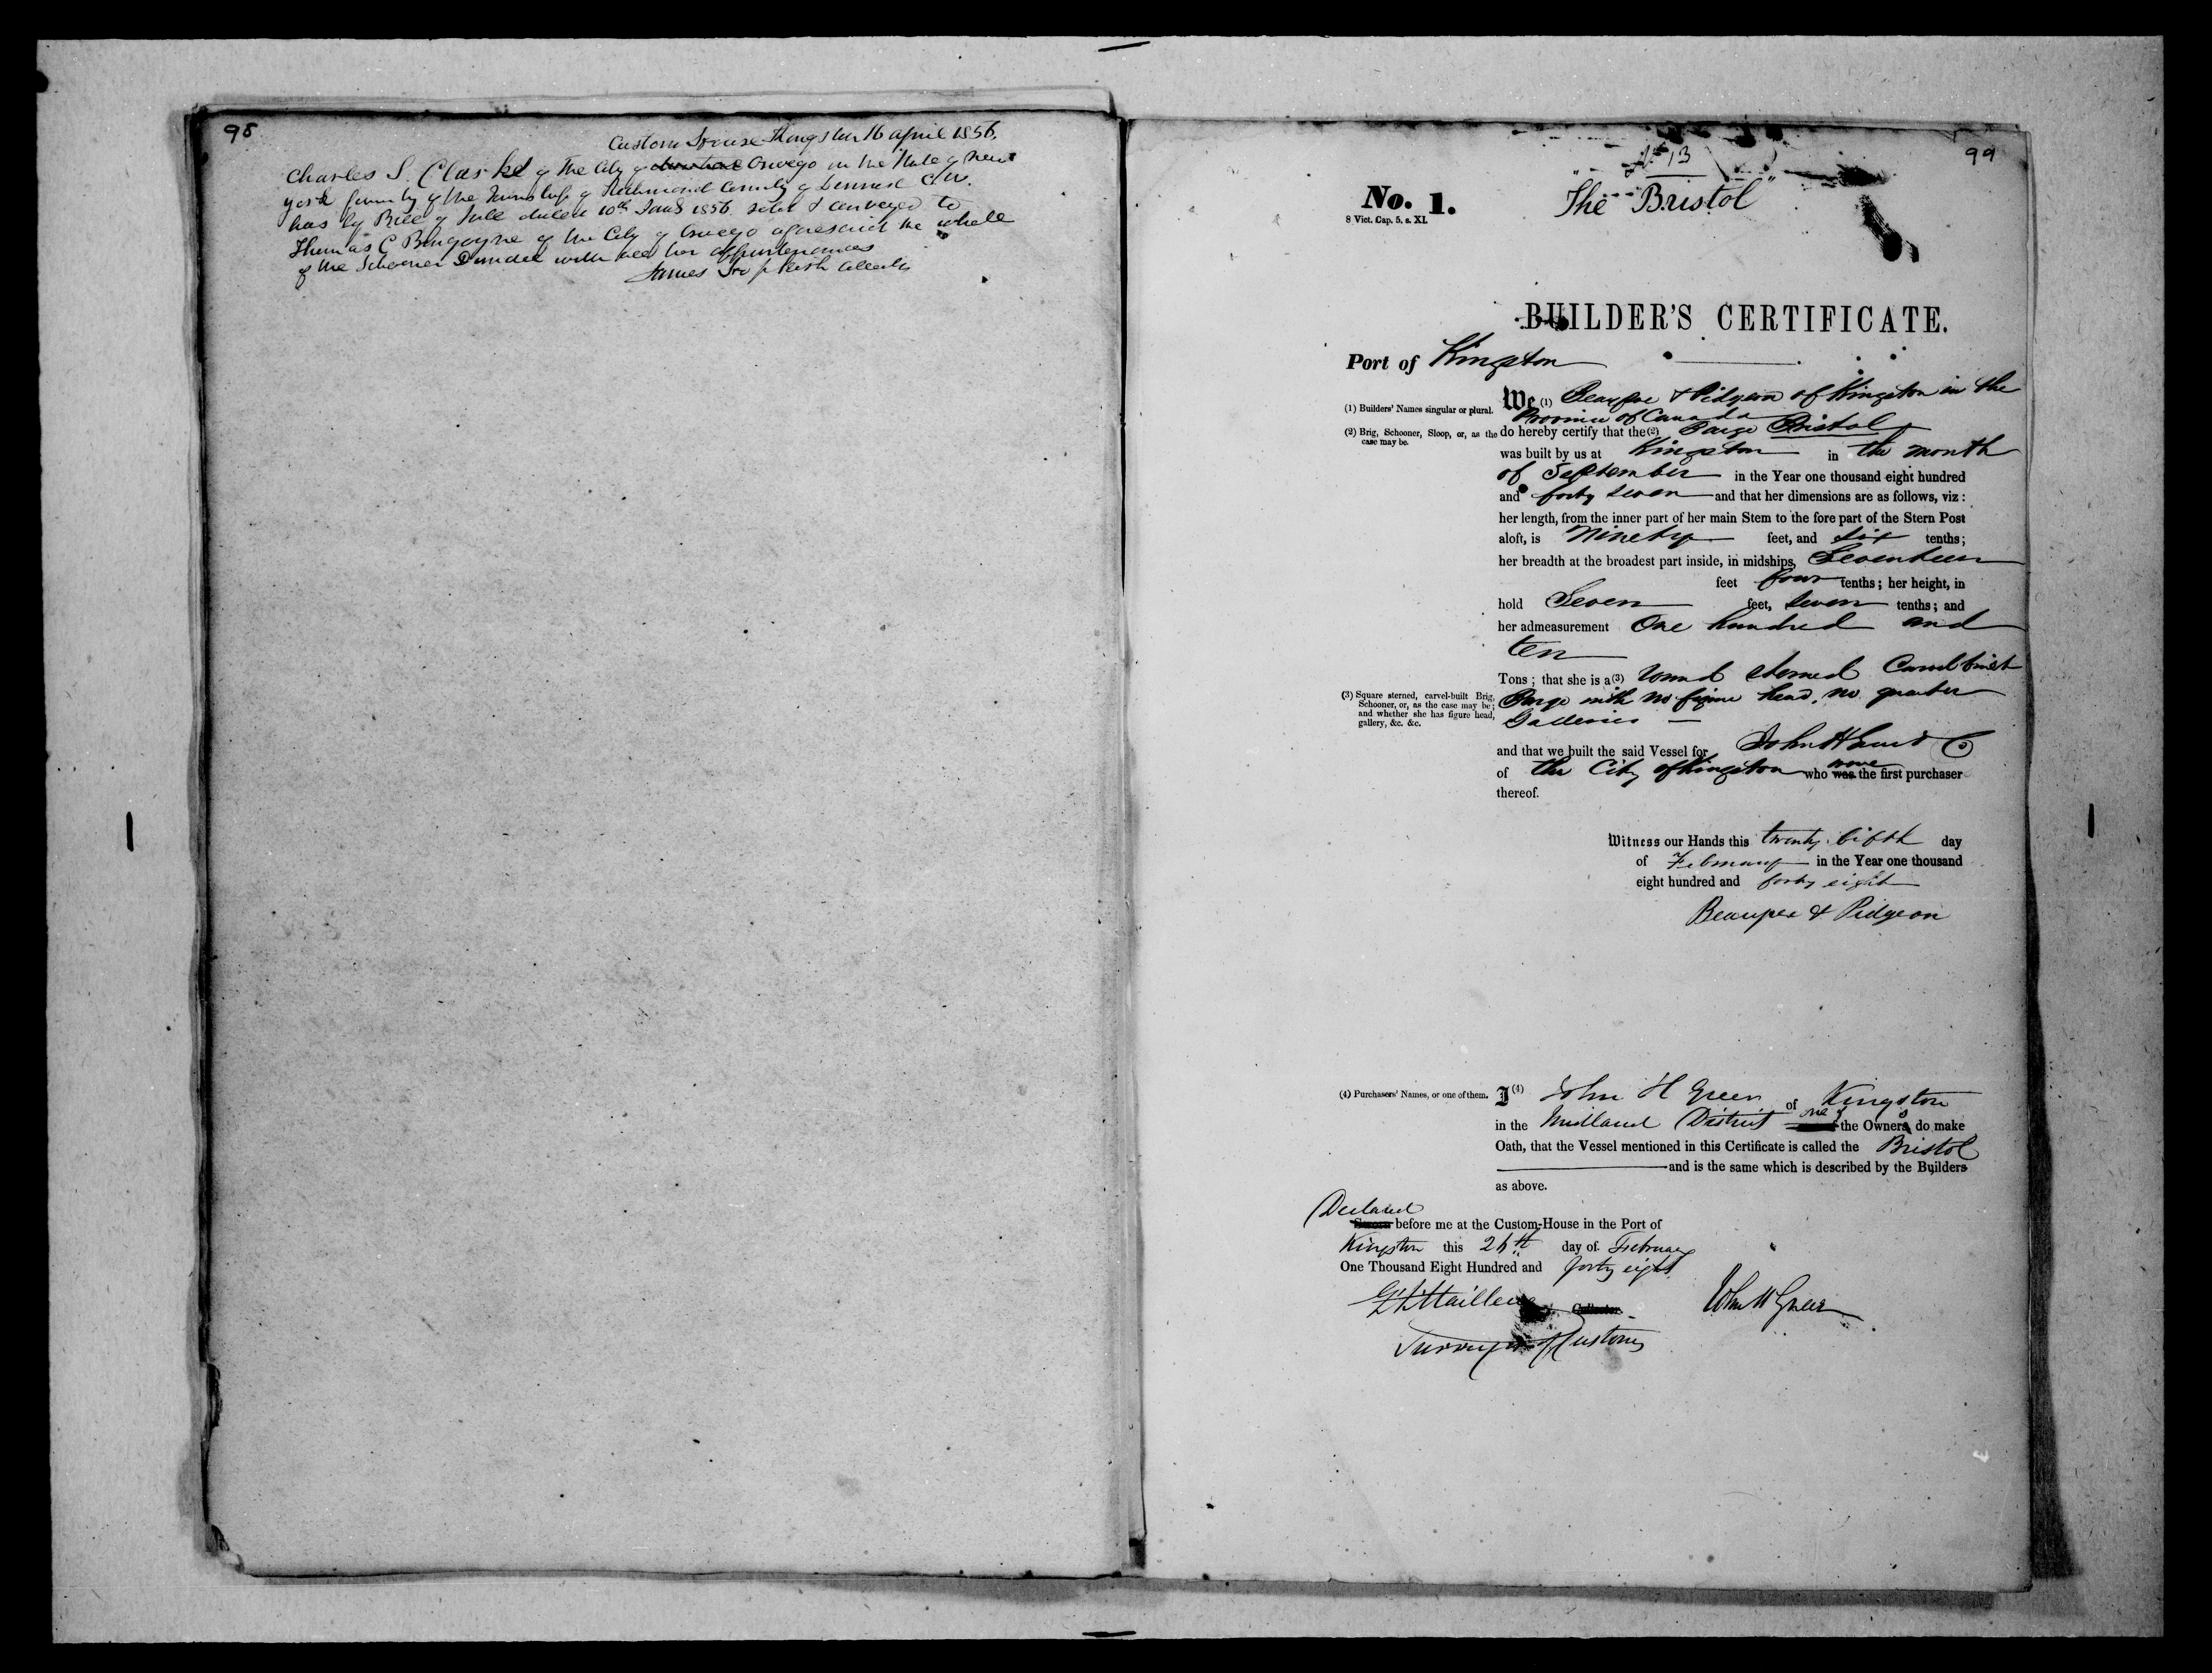 98
Custom House Kingston 16 april 1856.
Charles S. Clarke of The City of Oswego in the State of New
york formerly of the Township of Richmond County of Lennox C.W.
has by Bill of Sale dated 10th 1856 sold & conveyed to
Thomas C Burgoyne of the City of Oswego aforesaid the whole
of the Schooner Dundee with all her appurtenances
James
99
No 13
"The Bristol"
No. 1.
8 Vict. Cap. 5, s. XI.
BUILDER'S CERTIFICATE.
Port of Kingston
(1) Builders' Names singular or plural.
We (1) Beaupre & Pidgeon of Kingston in the
Province of Canada
(2) Brig, Schooner, Sloop, or, as the case may be.
do hereby certify that the (2) Barge Bristol
was built by us at Kingston in the month
of September in the Year one thousand eight hundred
and forty seven and that her dimensions are as follows, viz:
her length, from the inner part of her main Stem to the fore part of the Stern Post
aloft, is Ninety feet, and six tenths;
her breadth at the broadest part inside, in midships, Seventeen
feet four tenths; her height, in
hold Seven feet, seven tenths; and
her admeasurement One hundred and
ten
Tons; that she is a (3) round sterned Carvel built
(3) Square sterned, carvel-built Brig,
Schooner, or, as the case may be;
and whether she has figure head,
gallery, &c. &c.
Barge with no figure head, no quarter
Galleries
and that we built the said Vessel for John H Co
of the City of Kingston who were the first purchaser
thereof.
Witness our Hands this twenty fifth day
of February in the Year one thousand
eight hundred and forty eight
Beaupre & Pidgeon
(4) Purchasers' Names, or one of them.
I (4) John H Greer of Kingston
in the Midland District one of the Owners do make
Oath, that the Vessel mentioned in this Certificate is called the Bristol
and is the same which is described by the Builders
as above.
Declared
Sworn before me at the Custom-House in the Port of
Kingston this 26th day of February
One Thousand Eight Hundred and forty eight
Collector.
John H Greer
Surveyor of Customs